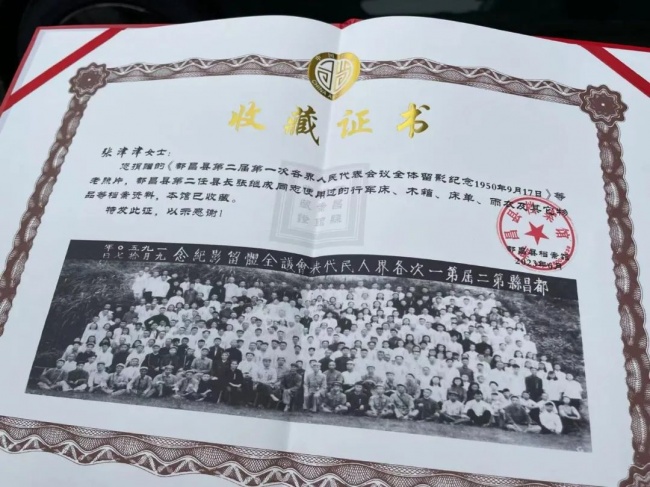 收藏证书
张津津女士：
您捐赠的《都昌县第二届第一次各界人民代表会议全体留影纪念1950年9月17日》等
老照片，都昌县第二任县长张继成同志使用过的行军床、木箱、床单、雨衣及其它物
品等档案资料，本馆已收藏。
特发此证，以示感谢！
都昌县档案馆
都昌縣第二屆第一次各界人民代表會議全體留影紀念
一九五〇年
九月十七日